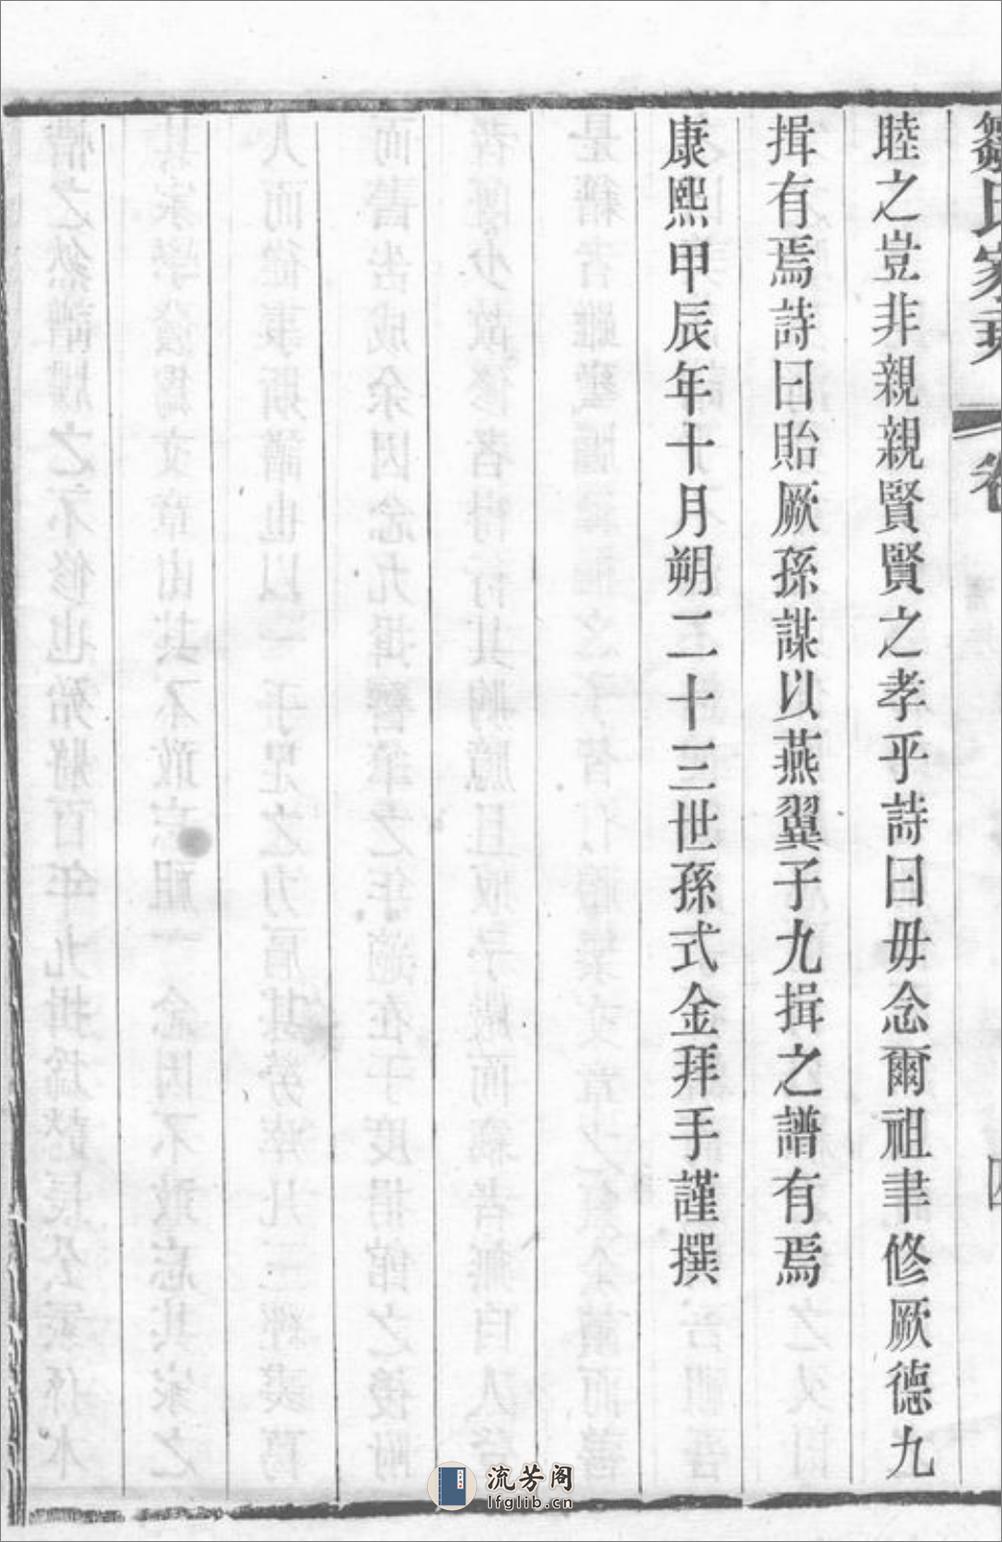 氏家乘 卷
睦之豈非親親賢賢之孝乎詩曰毋念爾祖聿修厥德九
揖有焉詩曰貽厥孫謀以燕翼子九揖之譜有焉
康熙甲辰年十月朔二十三世孫式金拜手謹撰
流芳阁
lfglib.cn